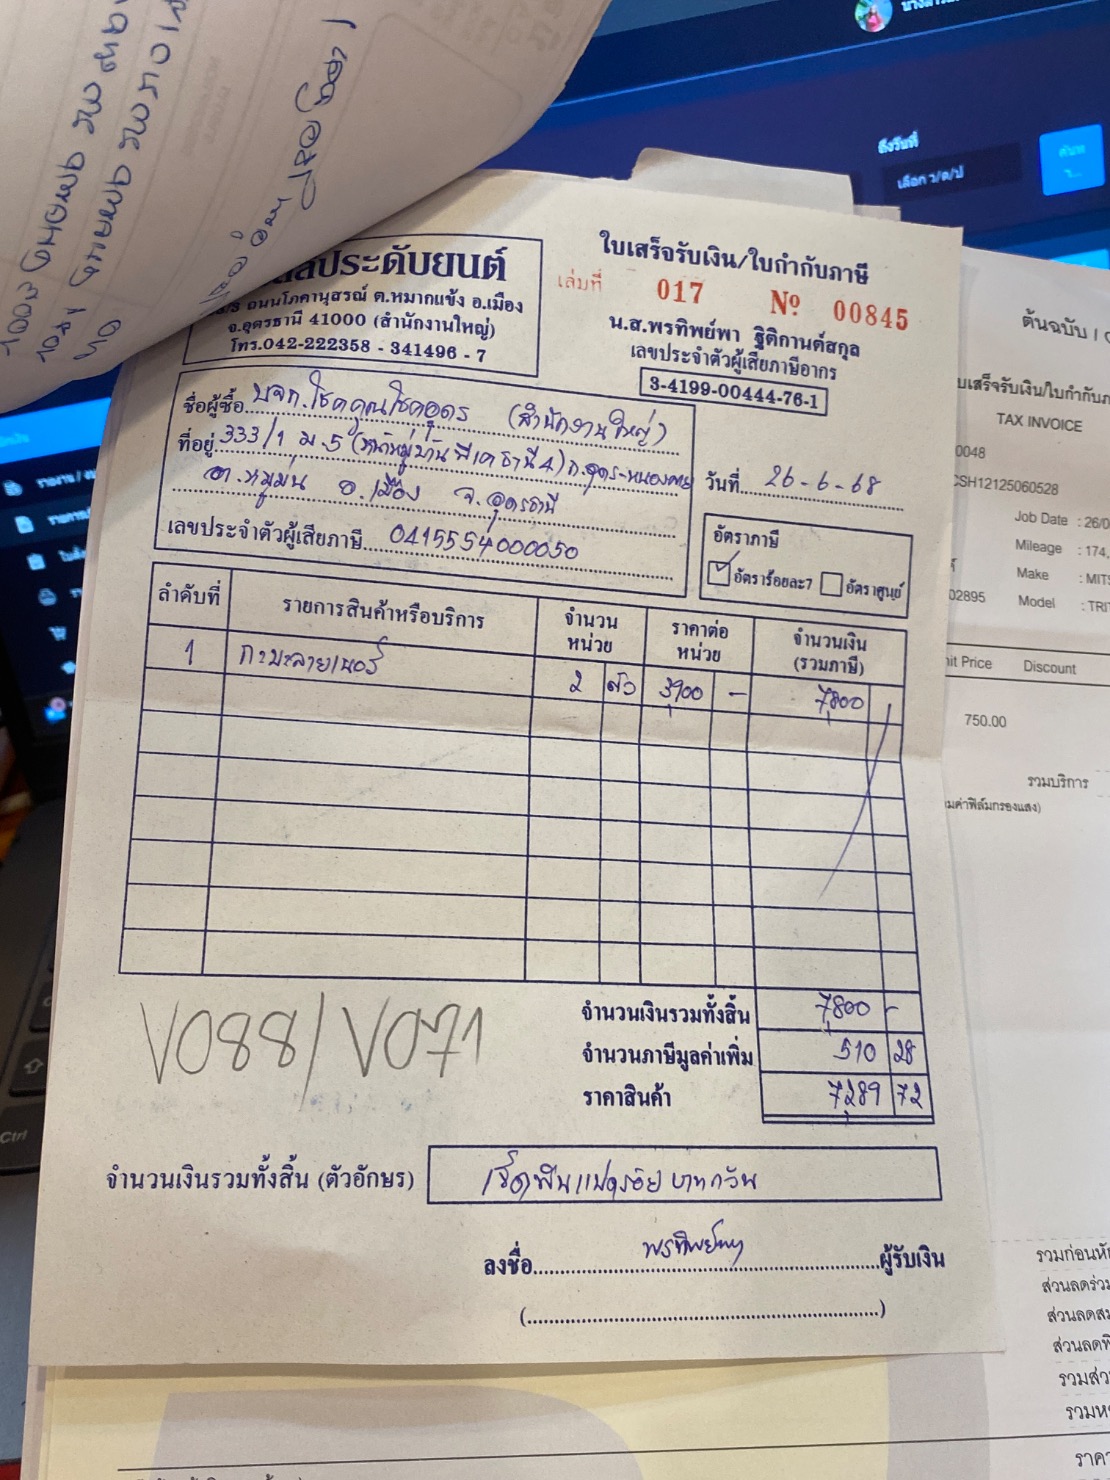 ประดับยนต์
ถนนโภคานุสรณ์ ต.หมากแข้ง อ.เมือง
จ.อุดรธานี 41000 (สำนักงานใหญ่)
โทร.042-222358 - 341496 - 7
ใบเสร็จรับเงิน/ใบกำกับภาษี
เล่มที่ 017 Nº 00845
น.ส.พรทิพย์พา ฐิติกานต์สกุล
เลขประจำตัวผู้เสียภาษีอากร
3-4199-00444-76-1
ชื่อผู้ซื้อ บจก.โชคคูณโชคอุดร (สำนักงานใหญ่)
ที่อยู่ 333/1 ม.5 (หน้าหมู่บ้าน พีเคธานี 4) ถ.อุดร-หนองคาย
ต.หมูม่น อ.เมือง จ.อุดรธานี
เลขประจำตัวผู้เสียภาษี 0415554000050
วันที่ 26-6-68
อัตราภาษี
อัตราร้อยละ7 อัตราศูนย์
ลำดับที่ รายการสินค้าหรือบริการ จำนวนหน่วย ราคาต่อหน่วย จำนวนเงิน (รวมภาษี)
1 กะบะลายเนอร์ 2 ตัว 3,900 - 7,800
จำนวนเงินรวมทั้งสิ้น 7,800 -
จำนวนภาษีมูลค่าเพิ่ม 510 28
ราคาสินค้า 7,289 72
V088/V071
จำนวนเงินรวมทั้งสิ้น (ตัวอักษร) เจ็ดพันแปดร้อยบาทถ้วน
ลงชื่อ พรทิพย์พา ผู้รับเงิน
(
)
ถึงวันที่
เลือก ว/ด/ป
ต้นฉบับ
TAX INVOICE
0048
CSH12125060528
Job Date : 26/0
Mileage : 174,
Make : MITS
02895 Model : TRIT
Unit Price Discount
750.00
รวมบริการ
Ctrl